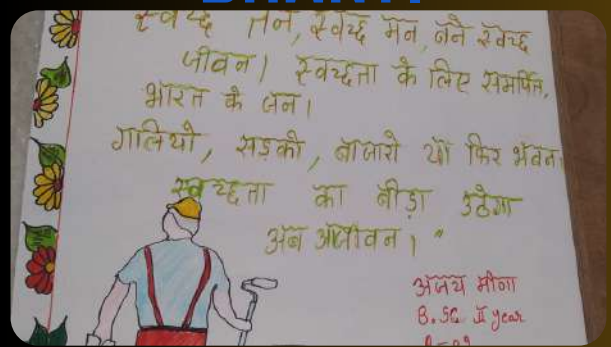 स्वच्छ तन, स्वच्छ मन, बने स्वच्छ
जीवन। स्वच्छता के लिए समर्पित,
भारत के जन।
गलियो, सड़को, बाजारो या फिर भवन
स्वच्छता का बीड़ा उठेगा
अब आजीवन। "
अजय मीणा
B.SC II year